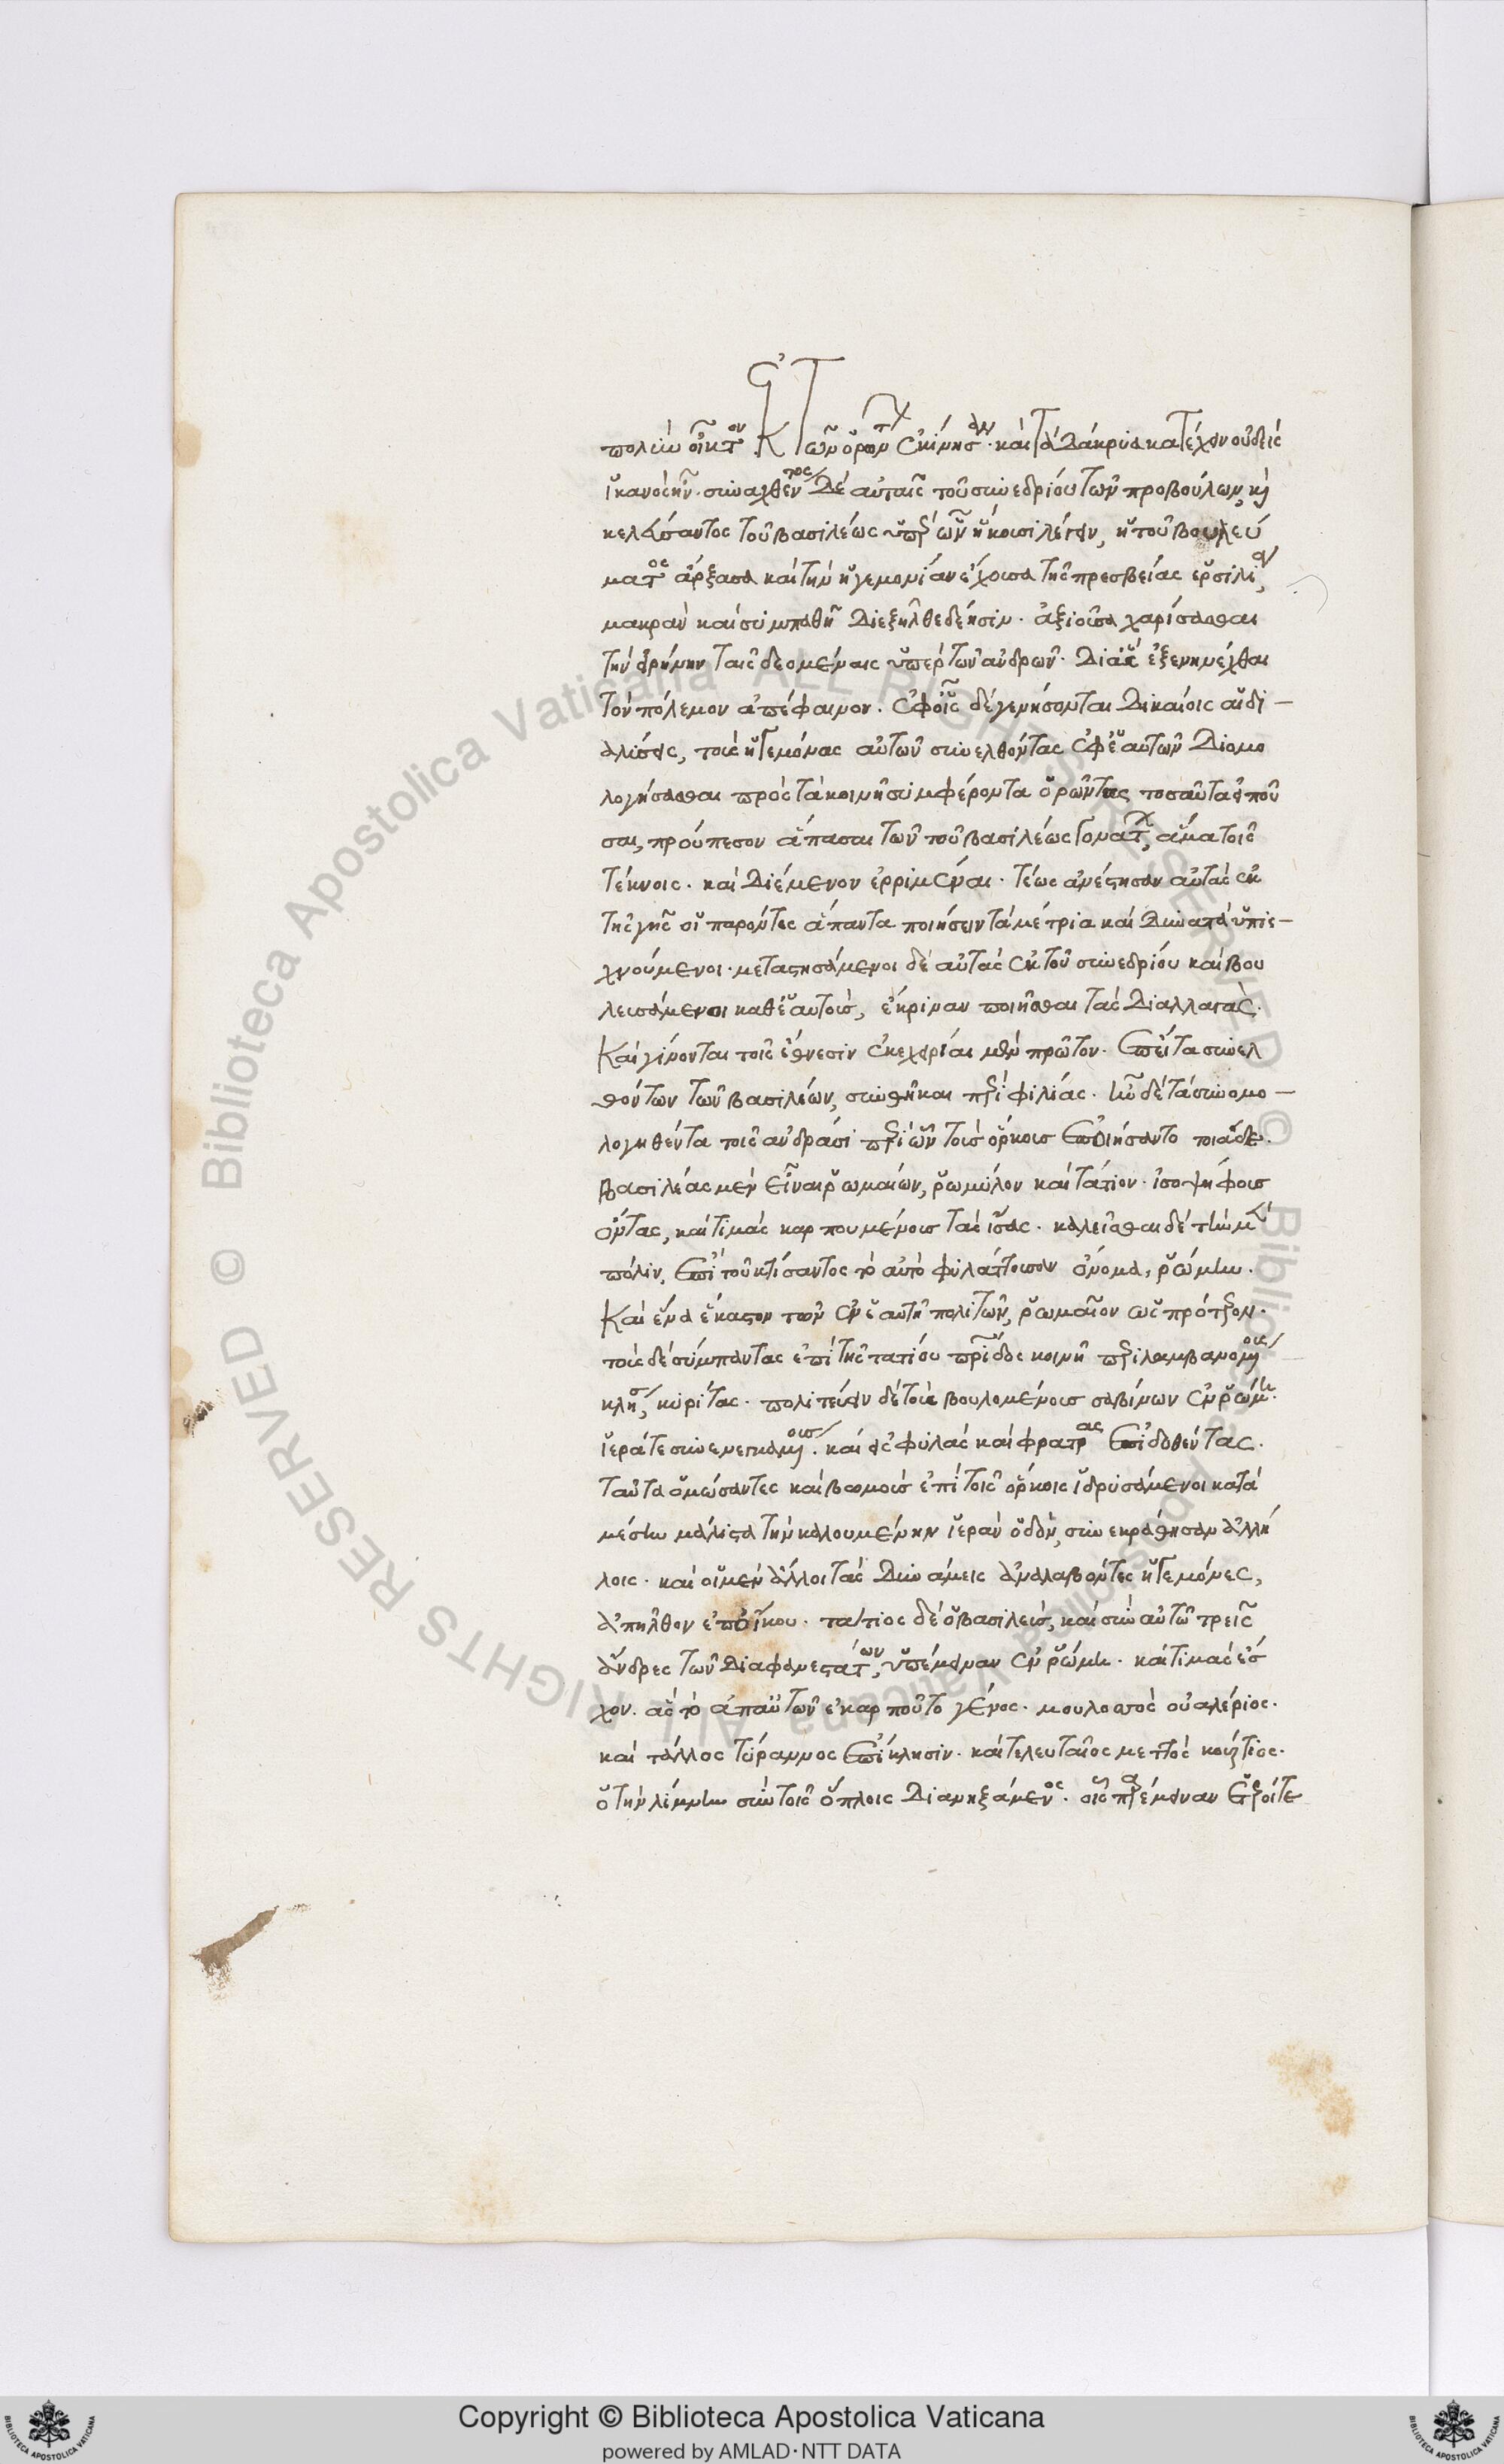 πολὺν οἶκτον ἐκ τῶν ὁρώντων ἐκίνησαν. καὶ τὰ δάκρυα κατέχειν οὐδεὶς
ἱκανὸς ἦν. συναχθέντος δὲ αὐταῖς τοῦ συνεδρίου τῶν προβούλων, καὶ
κελεύσαντος τοῦ βασιλέως ὑπὲρ ὧν ἥκουσι λέγειν, ἡ τοῦ βουλεύ
ματος ἄρξασα καὶ τὴν ἡγεμονίαν ἔχουσα τῆς πρεσβείας ἑρσιλία,
μακρὰν καὶ συμπαθῆ διεξῆλθε δέησιν. ἀξιοῦσα χαρίσασθαι
τὴν εἰρήνην ταῖς δεομέναις ὑπὲρ τῶν ἀνδρῶν. δι' ἃς ἐξενηνέχθαι
τὸν πόλεμον ἀπέφαινον. ἐφ' οἷς δὲ γενήσονται δικαίοις αἱ δι–
αλύσεις, τοὺς ἡγεμόνας αὐτῶν συνελθόντας ἐφ' ἑαυτῶν διομο
λογήσασθαι πρὸς τὰ κοινῇ συμφέροντα ὁρῶντας τοσαῦτα εἰποῦ
σαι, προύπεσον ἅπασαι τῶν τοῦ βασιλέως γονάτων, ἅμα τοῖς
τέκνοις. καὶ διέμενον ἐρριμέναι. τέως ἀνέστησαν αὐτὰς ἐκ
τῆς γῆς οἱ παρόντες ἅπαντα ποιήσειν τὰ μέτρια καὶ δυνατὰ ὑπισ–
χνούμενοι. μεταστησάμενοι δὲ αὐτὰς ἐκ τοῦ συνεδρίου καὶ βου
λευσάμενοι καθ' ἑαυτοὺς, ἔκριναν ποιῆσθαι τὰς διαλλαγὰς.
Καὶ γίνονται τοῖς ἔθνεσιν ἐκεχειρίαι μὲν πρῶτον. ἔπειτα συνελ
θόντων τῶν βασιλέων, συνθῆκαι περὶ φιλίας. ἦν δὲ τὰ συνομο–
λογηθέντα τοῖς ἀνδράσι περὶ ὧν τοὺς ὅρκους ἐποιήσαντο τοιάδε.
βασιλέας μὲν εἶναι ῥωμαίων, ῥωμύλον καὶ τάτιον. ἰσοψήφους
ὄντας, καὶ τιμὰς καρπουμένους τὰς ἴσας. καλεῖσθαι δὲ τὴν μὲν
πόλιν, ἐπὶ τοῦ κτίσαντος τὸ αὐτὸ φυλάττουσαν ὄνομα, ῥώμην.
Καὶ ἕνα ἕκαστον τῶν ἐν ἑαυτῇ πολιτῶν, ῥωμαῖον ὡς πρότερον.
τοὺς δὲ σύμπαντας ἐπὶ τῆς τατίου πατρίδος κοινῇ περιλαμβανομένους
κλήσει, κυρίτας. πολιτεύειν δὲ τοὺς βουλομένους σαβίνων ἐν ῥώμῃ.
ἱερά τε συνενεγκαμένους. καὶ εἰς φυλὰς καὶ φράτρας ἐπιδοθέντας.
ταῦτα ὀμώσαντες καὶ βωμοὺς ἐπὶ τοῖς ὅρκοις ἱδρυσάμενοι κατὰ
μέσην μάλιστα τὴν καλουμένην ἱερὰν ὁδὸν, συνεκράθησαν ἀλλή
λοις. καὶ οἱ μὲν ἄλλοι τὰς δυνάμεις ἀναλαβόντες ἡγεμόνες,
ἀπῆλθον ἐπ' οἴκου. τάτιος δὲ ὁ βασιλεὺς, καὶ σὺν αὐτῷ τρεῖς
ἄνδρες τῶν διαφανεστάτων, ὑπέμειναν ἐν ῥώμῃ. καὶ τιμὰς ἔσ
χον. ἃς τὸ ἀπ' αὐτῶν ἐκαρποῦτο γένος. μουλοσσὸς οὐαλέριος.
καὶ τάλλος τύραννος ἐπίκλησιν. καὶ τελευταῖος μεττὸς κούρτιος.
ὁ τὴν λίμνην σὺν τοῖς ὅπλοις διανηξάμενος. οἷς παρέμειναν ἕτεροί τε